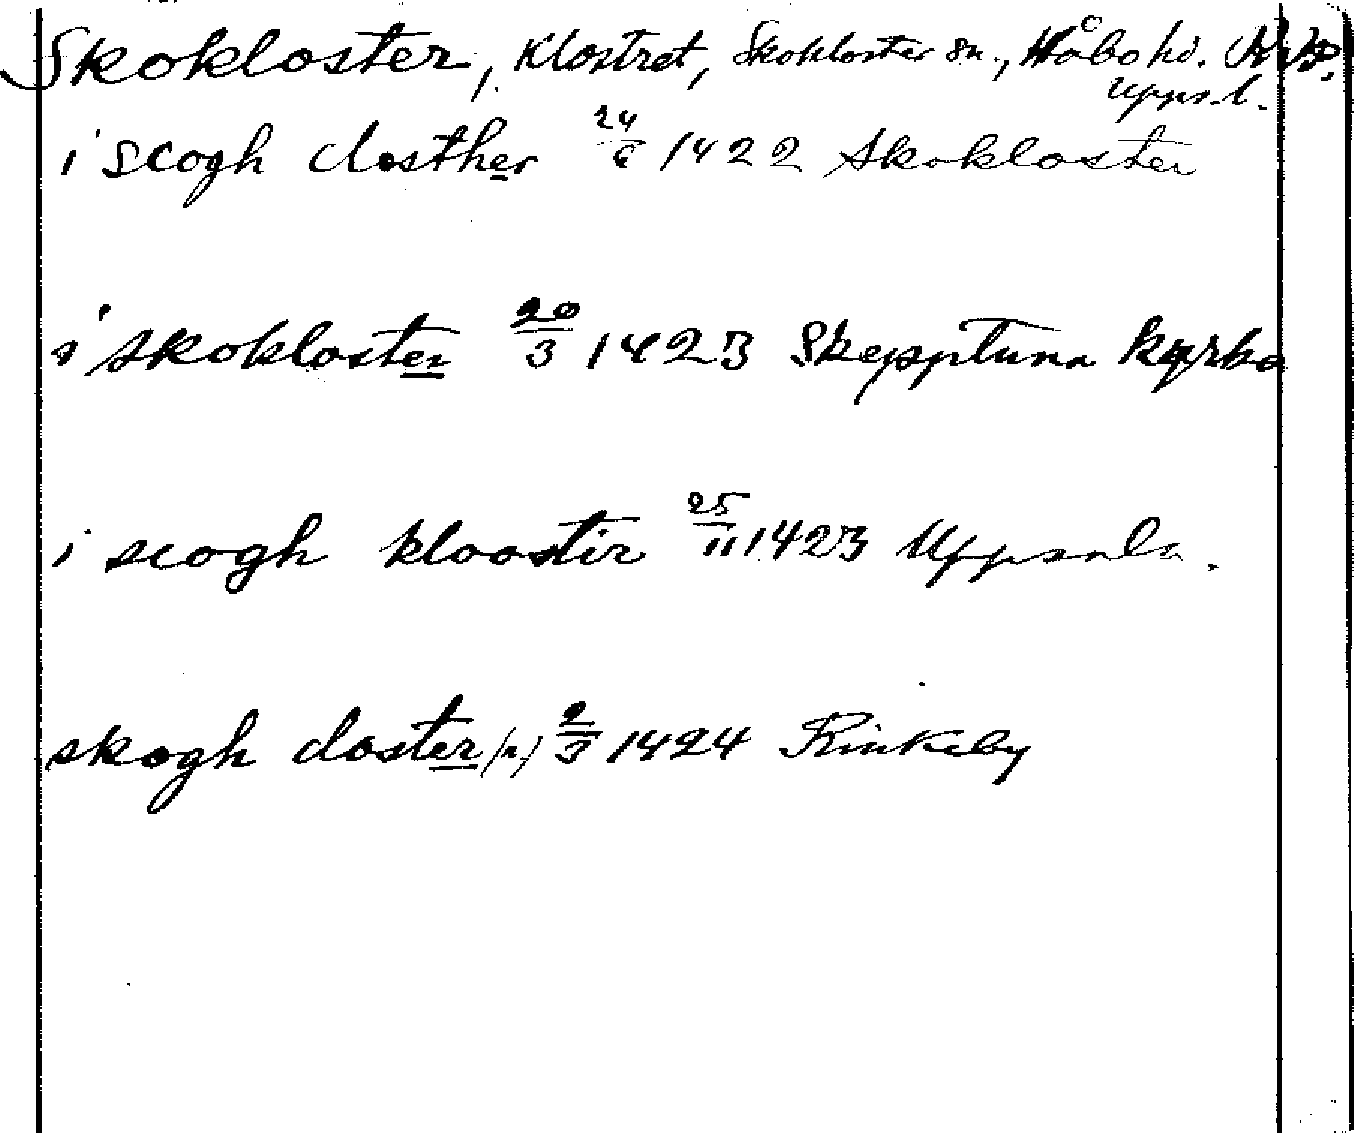 Skokloster, Klostret, Skokloster sn., Håbo hd.
Upps. l.
i scogh closther 24/6 1422 Skokloster
i skokloster 20/3 1423 Skepptuna kyrka
i scogh kloostir 25/11 1423 Uppsala.
skogh closter (n) 2/3 1424 Rinkeby